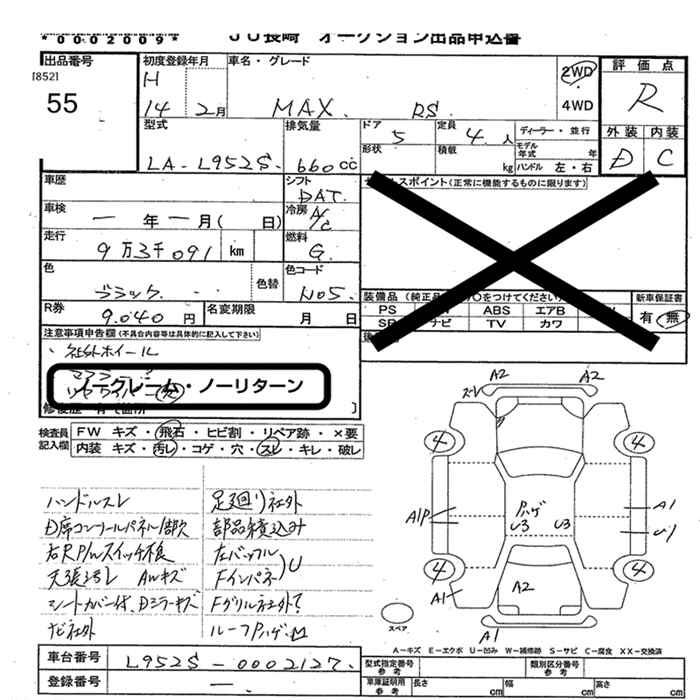 *0002009*
JU長崎 オークション出品申込書
出品番号
[852]
55
初度登録年月
H
14 2月
車名・グレード
MAX. RS.
2WD
4WD
評価点
R
外装 内装
D C
型式
LA-L952S.
排気量
660cc
ドア
5
形状
定員
4.人
積載
kg
ディーラー・並行
モデル年式 年
ハンドル 左・右
車歴
シフト
DAT.
スポイント(正常に機能するものに限ります)
車検
一年一月( 日)
冷房
A/C
走行
9万3千091 km
燃料
G.
色
ブラック.
色替
色コード
N05.
装備品(純正品
○をつけてください
PS
ABS
エアB
ナビ
TV
カワ
新車保証書
有・無
R券
9.040円
名変期限
月 日
注意事項申告欄(不具合内容等は具体的に記入して下さい)
社外ホイール
ノークレーム・ノーリターン
修復歴
検査員記入欄
FW キズ・飛石・ヒビ割・リペア跡・×要
内装 キズ・汚レ・コゲ・穴・スレ・キレ・破レ
ハンドルスレ
D席コンソールパネル1部欠
右RP/Wスイッチ不良
天張ヨゴレ AWキズ
シートカバー付、Dミラーキズ
ナビ社外
足廻り社外
部品積込み
左バッフル
Fインパネ U
Fグリル社外?
ルーフPハゲ.M
スレ
A2
A2
4
4
A1P
Pハゲ
U3
U3
A1
U1
4
4
A1
A2
A1
スペア
A-キズ E-エクボ U-凹み W-補修跡 S-サビ C-腐食 XX-交換済
車台番号
L952S-0002127.
登録番号
一.
型式指定番号
参考
類別区分番号
参考
車庫証明用
参考
長さ cm
幅 cm
高さ cm